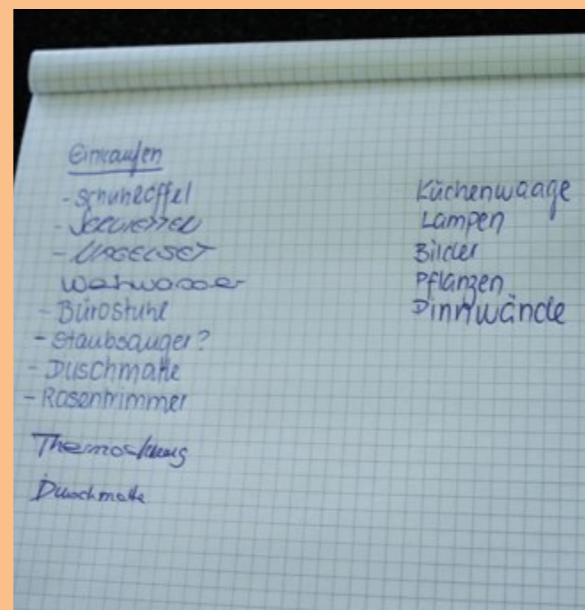 Einkaufen
- Schuhlöffel
- SERVIETTEN
- NAGELSET
Weihwasser
- Bürostuhl
- Staubsauger?
- Duschmatte
- Rasentrimmer
Thermoskanne
Duschmatte
Küchenwaage
Lampen
Bilder
Pflanzen
Pinnwände